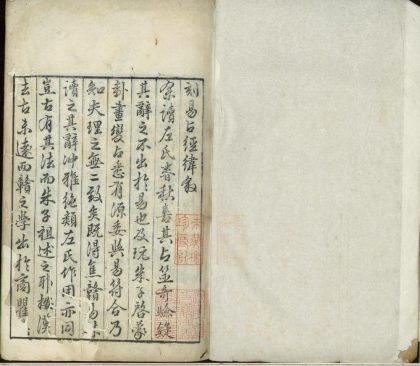 刻易占經緯敘
余讀左氏春秋喜其占筮奇驗疑
其辭之不出於易也及玩朱子啓蒙
卦畫變占悉有源委與易符合乃
知天理之無二致矣既得焦贛易林
讀之其辭冲雅絕類左氏作用亦同
豈古有其法而朱子祖述之耶據漢
去古未遠而贛之學出於商瞿